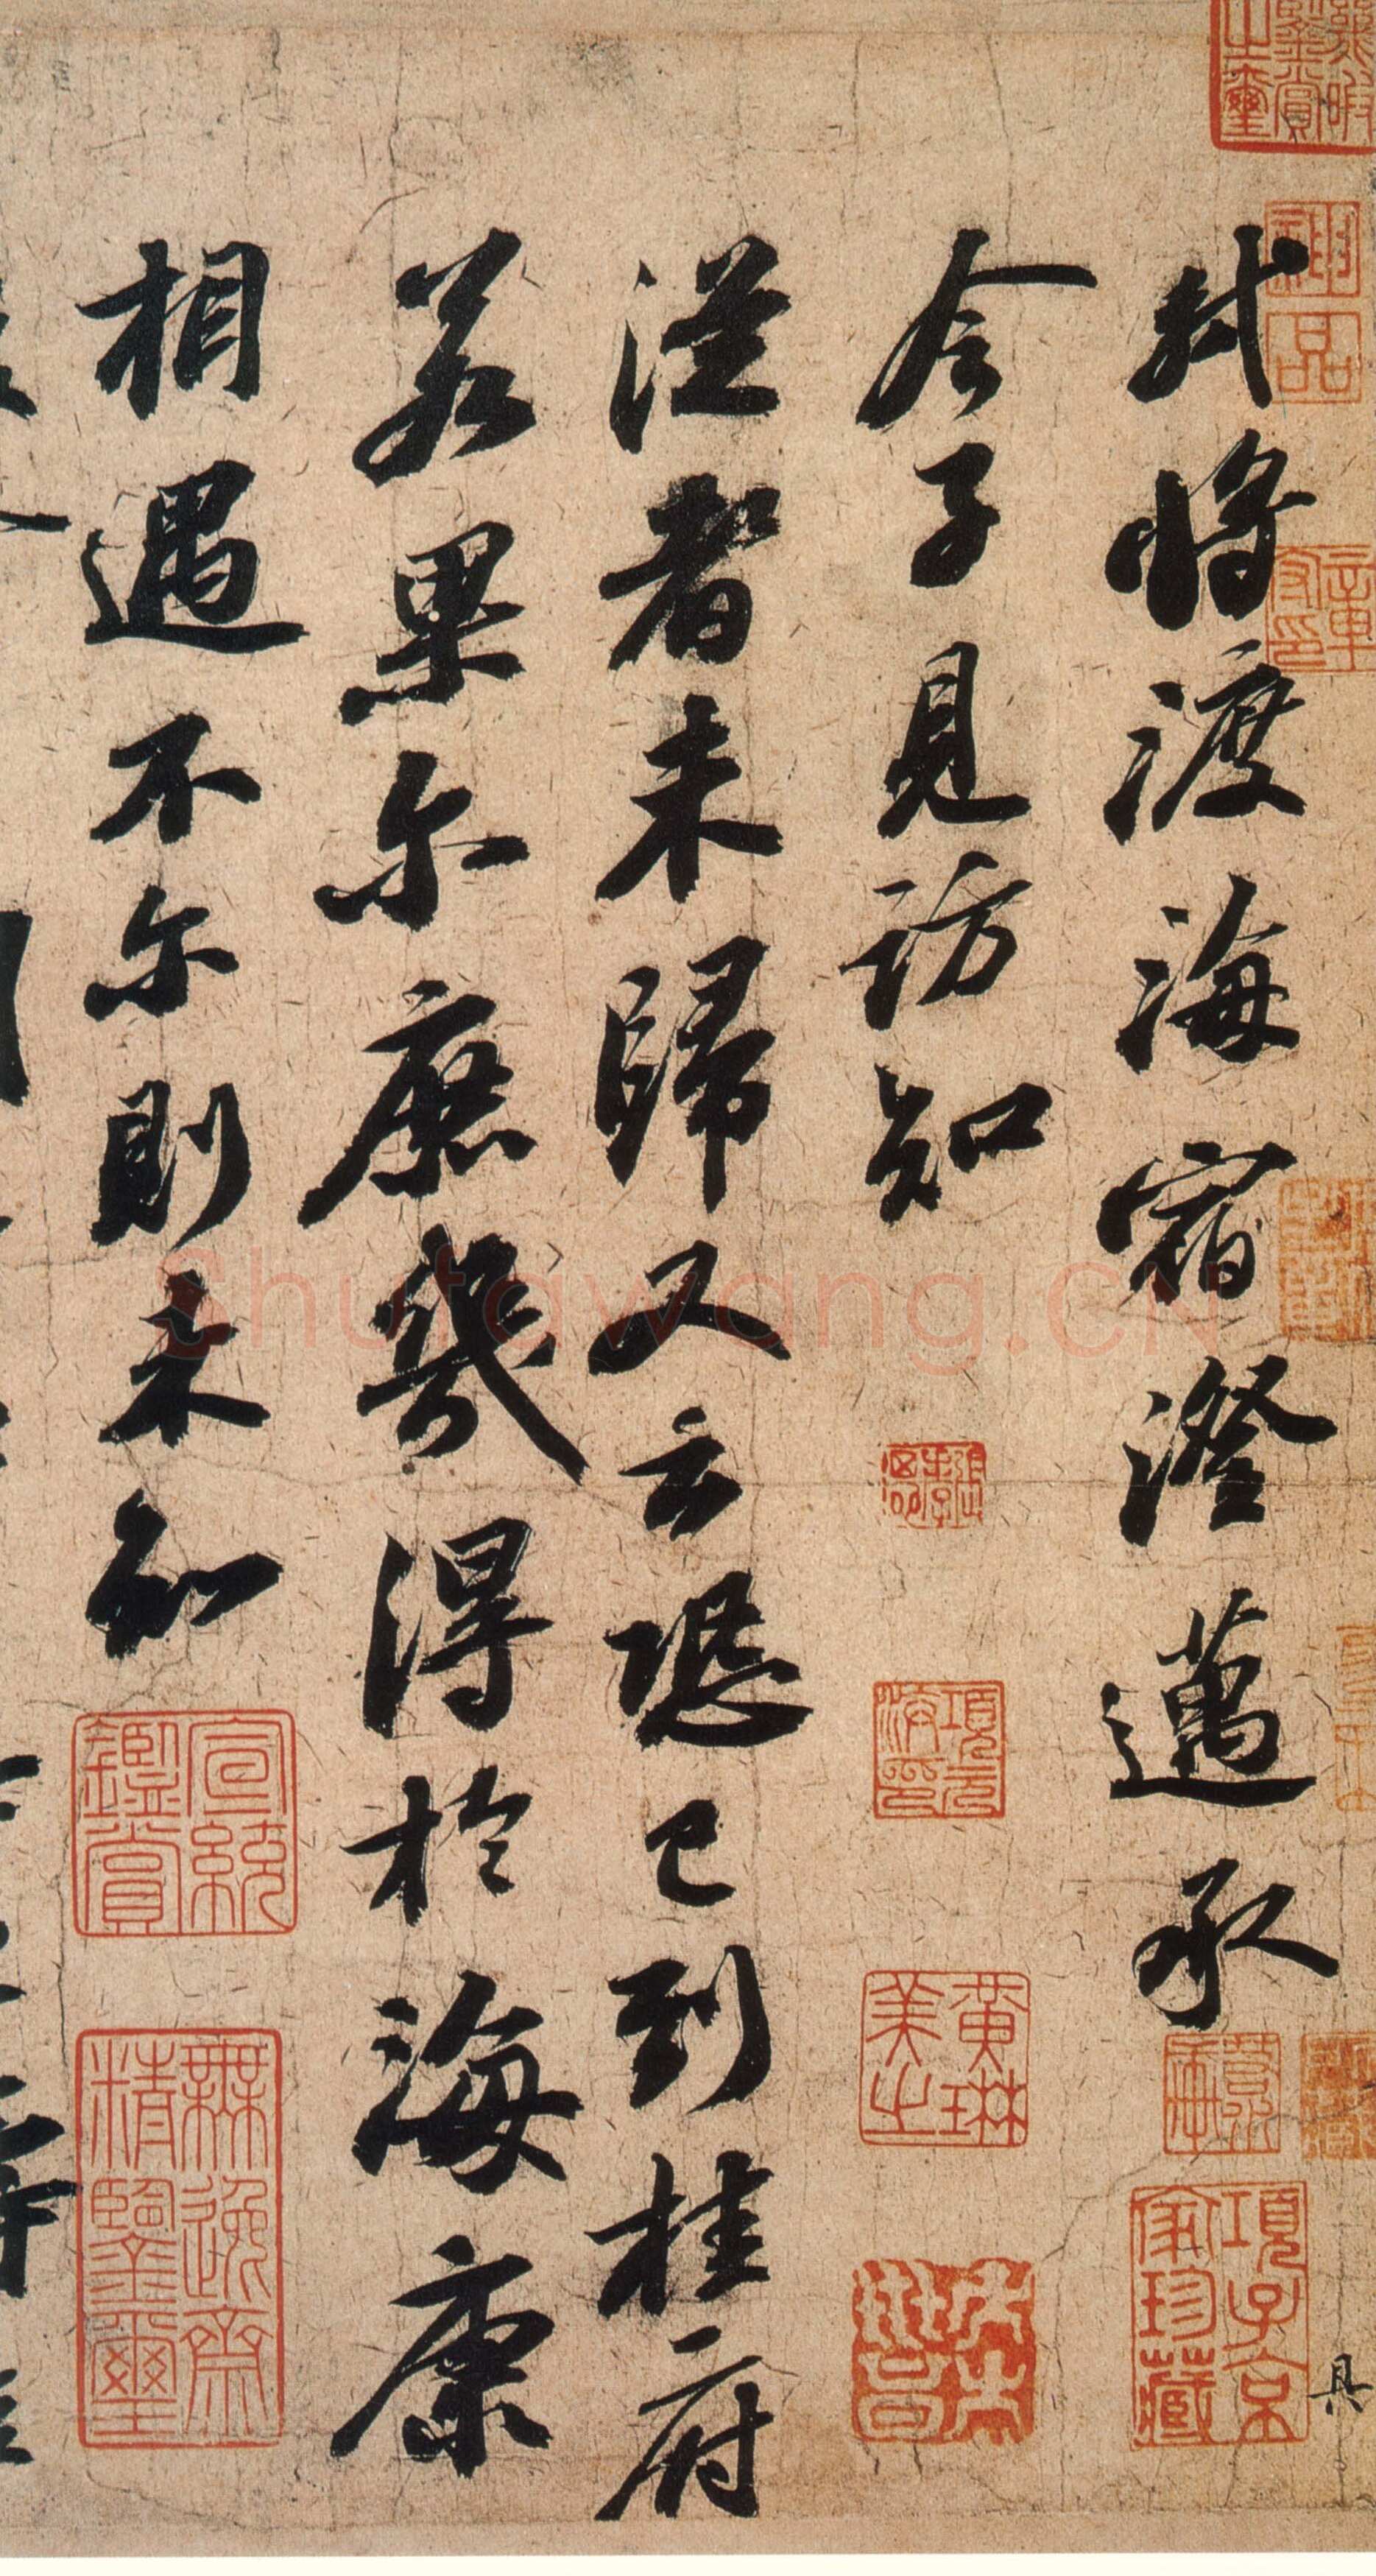 軾將渡海宿澄邁承
令子見訪知
從者未歸又云恐已到桂府
若果尔庶幾得於海康
相遇不尔則未知
具
神品
項元汴印
黃琳美之
項子京家珍藏
宣統鑑賞
無逸齋精鑒璽
Shufawang.CN